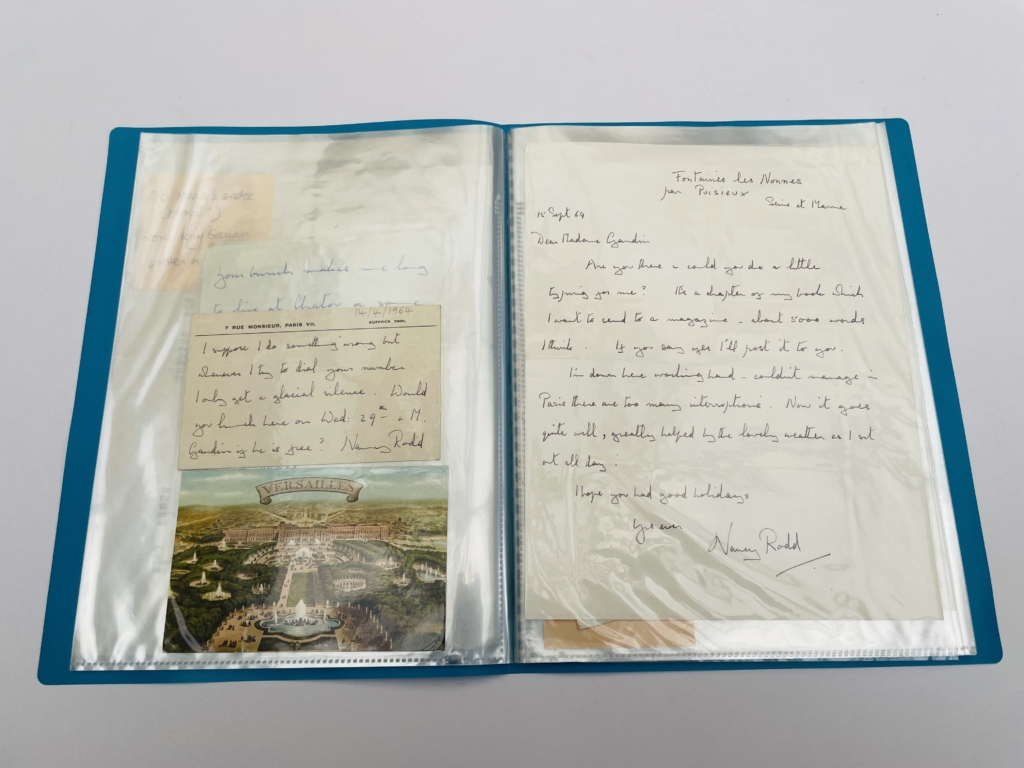 your lunch makes me long
to live at
14/4/1964
7 RUE MONSIEUR, PARIS VII.
SUFFREN 7665.
I suppose I do something wrong but
whenever I try to dial your number
I only get a glacial silence. Would
you lunch here on Wed: 29th + M.
Gandin if he is free? Nancy Rodd
VERSAILLES
Fontaines les Nonnes
par Puisieux
Seine et Marne
15 Sept 64
Dear Madame Gandin
Are you there & could you do a little
typing for me? It's a chapter of my book which
I want to send to a magazine - about 5000 words
I think. If you say yes I'll post it to you.
I'm down here working hard - couldn't manage in
Paris there are too many interruptions. Now it goes
quite well, greatly helped by the lovely weather as I sit
out all day.
I hope you had good holidays
Yrs ever
Nancy Rodd